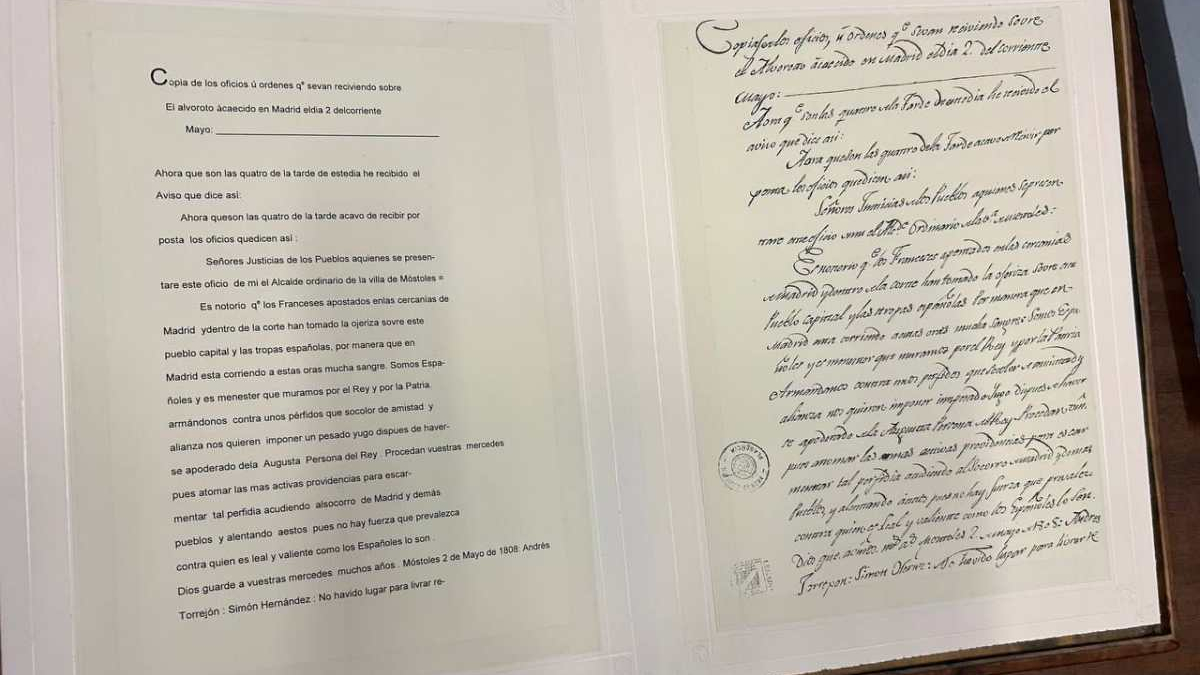 Copia de los oficios ú ordenes qᵉ sevan reciviendo sobre
El alvoroto àcaecido en Madrid eldia 2 delcorriente
Mayo:
Ahora que son las quatro de la tarde de estedia he recibido el
Aviso que dice asi:
Ahora queson las quatro de la tarde acavo de recibir por
posta los oficios quedicen asi :
Señores Justicias de los Pueblos aquienes se presen-
tare este oficio de mi el Alcalde ordinario de la villa de Móstoles =
Es notorio qᵉ los Franceses apostados enlas cercanias de
Madrid ydentro de la corte han tomado la ojeriza sovre este
pueblo capital y las tropas españolas, por manera que en
Madrid esta corriendo a estas oras mucha sangre. Somos Espa-
ñoles y es menester que muramos por el Rey y por la Patria,
armándonos contra unos pérfidos que socolor de amistad y
alianza nos quieren imponer un pesado yugo dispues de haver-
se apoderado dela Augusta Persona del Rey . Procedan vuestras mercedes
pues atomar las mas activas providencias para escar-
mentar tal perfidia acudiendo alsocorro de Madrid y demás
pueblos y alentando aestos pues no hay fuerza que prevalezca
contra quien es leal y valiente como los Españoles lo son .
Dios guarde a vuestras mercedes muchos años . Móstoles 2 de Mayo de 1808: Andrés
Torrejón : Simón Hernández : No havido lugar para livrar re-
Copia de los oficios, ù ordenes qᵉ sevan reiviendo sovre
el Alvoroto àcaecido en Madrid eldia 2. del corriente
Mayo:
Aora qᵉ son las quatro de la tarde de estedia he recivido el
aviso que dice asi:
Aora queson las quatro dela tarde acavo de recivir por
posta los oficios quedicen asi:
Señores Justicias de los Pueblos aquienes sepresen
tare este oficio de mi el Alcᵈᵉ Ordinario de la vᵃ de Mostoles:
Es notorio qᵉ los Franceses apostados enlas cercanias
de Madrid ydentro de la corte han tomado la ojeriza sovre este
Pueblo capital y las tropas españolas Por manera que en
Madrid esta corriendo aestas oras mucha sangre Somos Espa
ñoles y es menester que muramos por el Rey y por la Patria
Armandonos contra unos perfidos que socolor de amistad y
alianza nos quieren imponer un pesado Yugo dispues de haver
se apoderado de la Augusta Persona del Rey Procedan
pues atomar las mas activas providencias para escar
mentar tal perfidia acudiendo al Socorro de Madrid y demas
Pueblos, y alentando àestos pues no hay fuerza que prevalez
contra quien es leal y valiente como los Españoles lo son.
Dios gue. a Mostoles 2. de Mayo de Andres
Torrejon: Simon Ohrnz: No havido lugar para livrar re